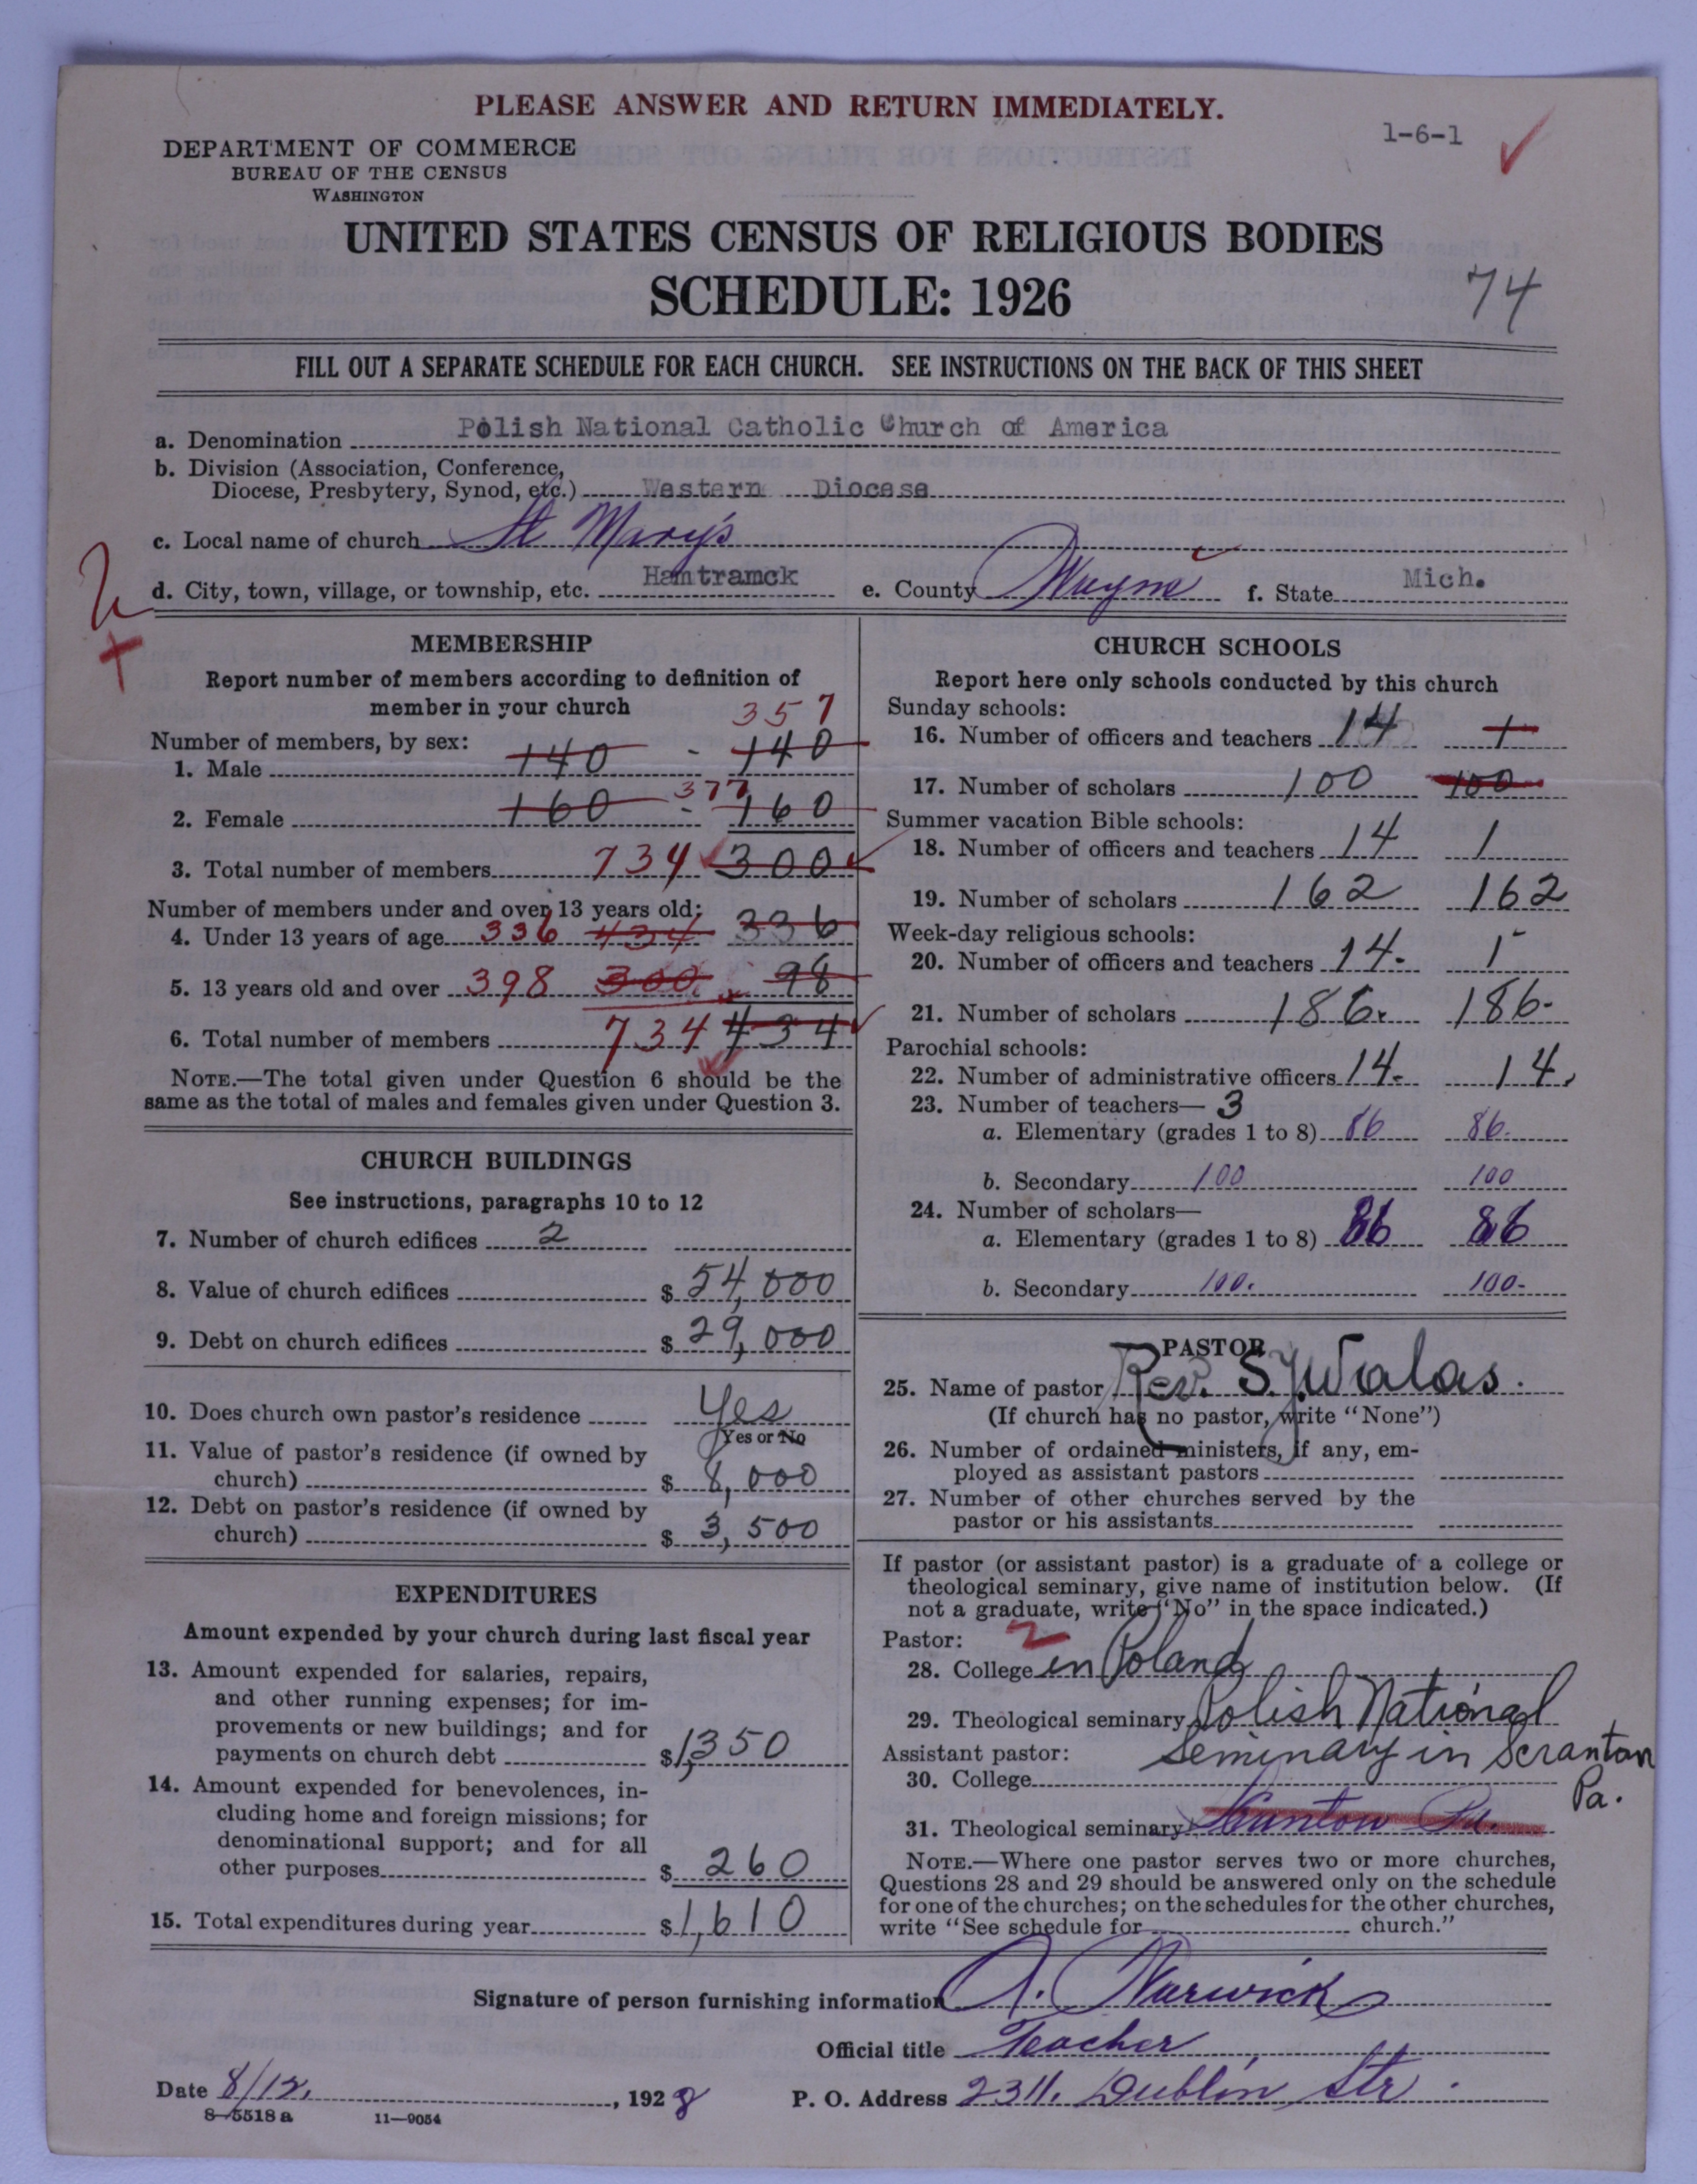 PLEASE ANSWER AND RETURN IMMEDIATELY.
1-6-1
DEPARTMENT OF COMMERCE
BUREAU OF THE CENSUS
WASHINGTON
UNITED STATES CENSUS OF RELIGIOUS BODIES
SCHEDULE: 1926
74
FILL OUT A SEPARATE SCHEDULE FOR EACH CHURCH. SEE INSTRUCTIONS ON THE BACK OF THIS SHEET
a. Denomination Polish National Catholic Church of America
b. Division (Association, Conference,
Diocese, Presbytery, Synod, etc.) Western Diocese
c. Local name of church St Mary's
d. City, town, village, or township, etc. Hamtramck e. County Wayne f. State Mich.
MEMBERSHIP
Report number of members according to definition of
member in your church
357
Number of members, by sex:
1. Male 140 - 140
377
2. Female 160 - 160
3. Total number of members 734 300
Number of members under and over 13 years old:
4. Under 13 years of age 336 434 336
5. 13 years old and over 398 300 98
6. Total number of members 734 434
NOTE.—The total given under Question 6 should be the
same as the total of males and females given under Question 3.
CHURCH BUILDINGS
See instructions, paragraphs 10 to 12
7. Number of church edifices 2
8. Value of church edifices $ 54,000
9. Debt on church edifices $ 29,000
10. Does church own pastor's residence Yes
Yes or No
11. Value of pastor's residence (if owned by
church) $ 8,000
12. Debt on pastor's residence (if owned by
church) $ 3,500
EXPENDITURES
Amount expended by your church during last fiscal year
13. Amount expended for salaries, repairs,
and other running expenses; for im-
provements or new buildings; and for
payments on church debt $ 1,350
14. Amount expended for benevolences, in-
cluding home and foreign missions; for
denominational support; and for all
other purposes $ 260
15. Total expenditures during year $ 1,610
CHURCH SCHOOLS
Report here only schools conducted by this church
Sunday schools:
16. Number of officers and teachers 14 1
17. Number of scholars 100 100
Summer vacation Bible schools:
18. Number of officers and teachers 14 1
19. Number of scholars 162 162
Week-day religious schools:
20. Number of officers and teachers 14. 1
21. Number of scholars 186. 186-
Parochial schools:
22. Number of administrative officers 14- 14,
23. Number of teachers— 3
a. Elementary (grades 1 to 8) 86 86.
b. Secondary 100 100
24. Number of scholars—
a. Elementary (grades 1 to 8) 86 86
b. Secondary 100. 100-
PASTOR
25. Name of pastor Rev. S.J. Walas.
(If church has no pastor, write "None")
26. Number of ordained ministers, if any, em-
ployed as assistant pastors
27. Number of other churches served by the
pastor or his assistants
If pastor (or assistant pastor) is a graduate of a college or
theological seminary, give name of institution below. (If
not a graduate, write "No" in the space indicated.)
Pastor:
28. College in Poland
29. Theological seminary Polish National
Assistant pastor: Seminary in Scranton
30. College Pa.
31. Theological seminary Scranton Pa.
NOTE.—Where one pastor serves two or more churches,
Questions 28 and 29 should be answered only on the schedule
for one of the churches; on the schedules for the other churches,
write "See schedule for church."
Signature of person furnishing information A. Warwick
Official title Teacher
Date 8/12, 1928 P. O. Address 2311. Dublin Str.
8-5518 a 11-9054